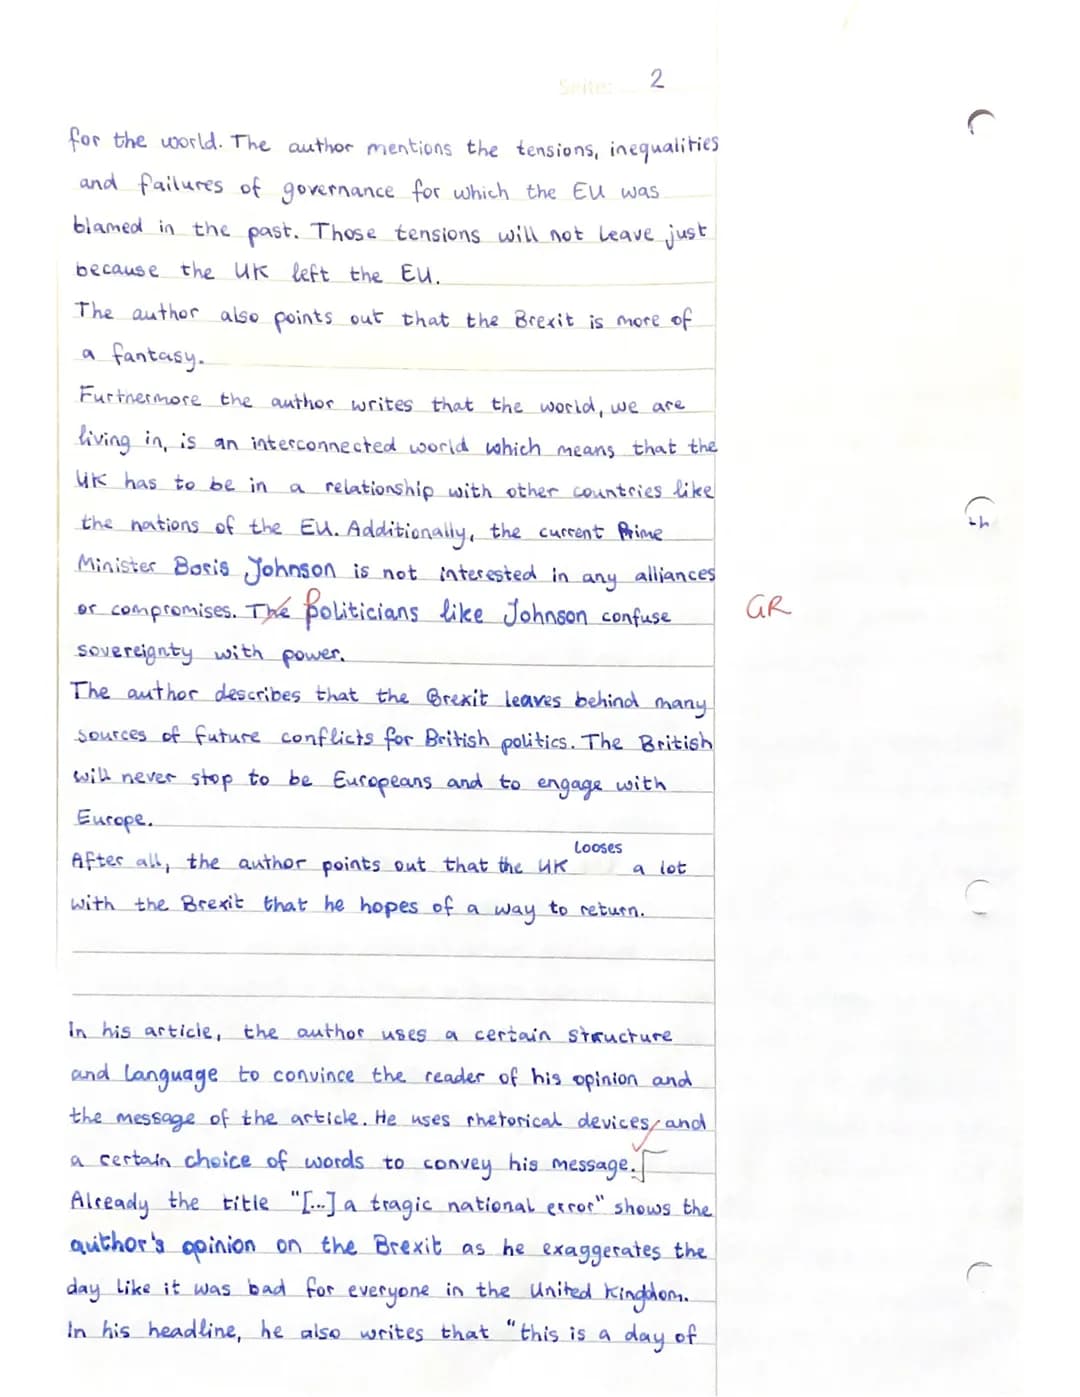 Seite: 2
for the world. The author mentions the tensions, inequalities
and failures of governance for which the EU was
blamed in the past. Those tensions will not leave just
because the UK left the EU.
The author also points out that the Brexit is more of
a fantasy.
Furthermore the author writes that the world, we are
living in, is an interconnected world which means that the
UK has to be in a relationship with other countries like
the nations of the EU. Additionally, the current Prime
Minister Boris Johnson is not interested in any alliances
or compromises. The politicians like Johnson confuse GR
sovereignty with power.
The author describes that the Brexit leaves behind many
sources of future conflicts for British politics. The British
will never stop to be Europeans and to engage with
Europe.
After all, the author points out that the UK looses a lot
with the Brexit that he hopes of a way to return.
In his article, the author uses a certain structure
and language to convince the reader of his opinion and
the message of the article. He uses rhetorical devices and
a certain choice of words to convey his message.
Already the title "[...] a tragic national error" shows the
author's opinion on the Brexit as he exaggerates the
day like it was bad for everyone in the United Kingdom.
In his headline, he also writes that "this is a day of